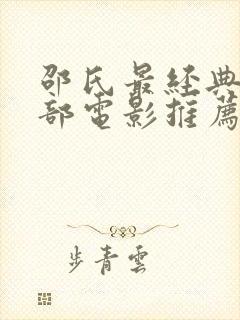 邵氏最經典
部電影推薦
步青雲